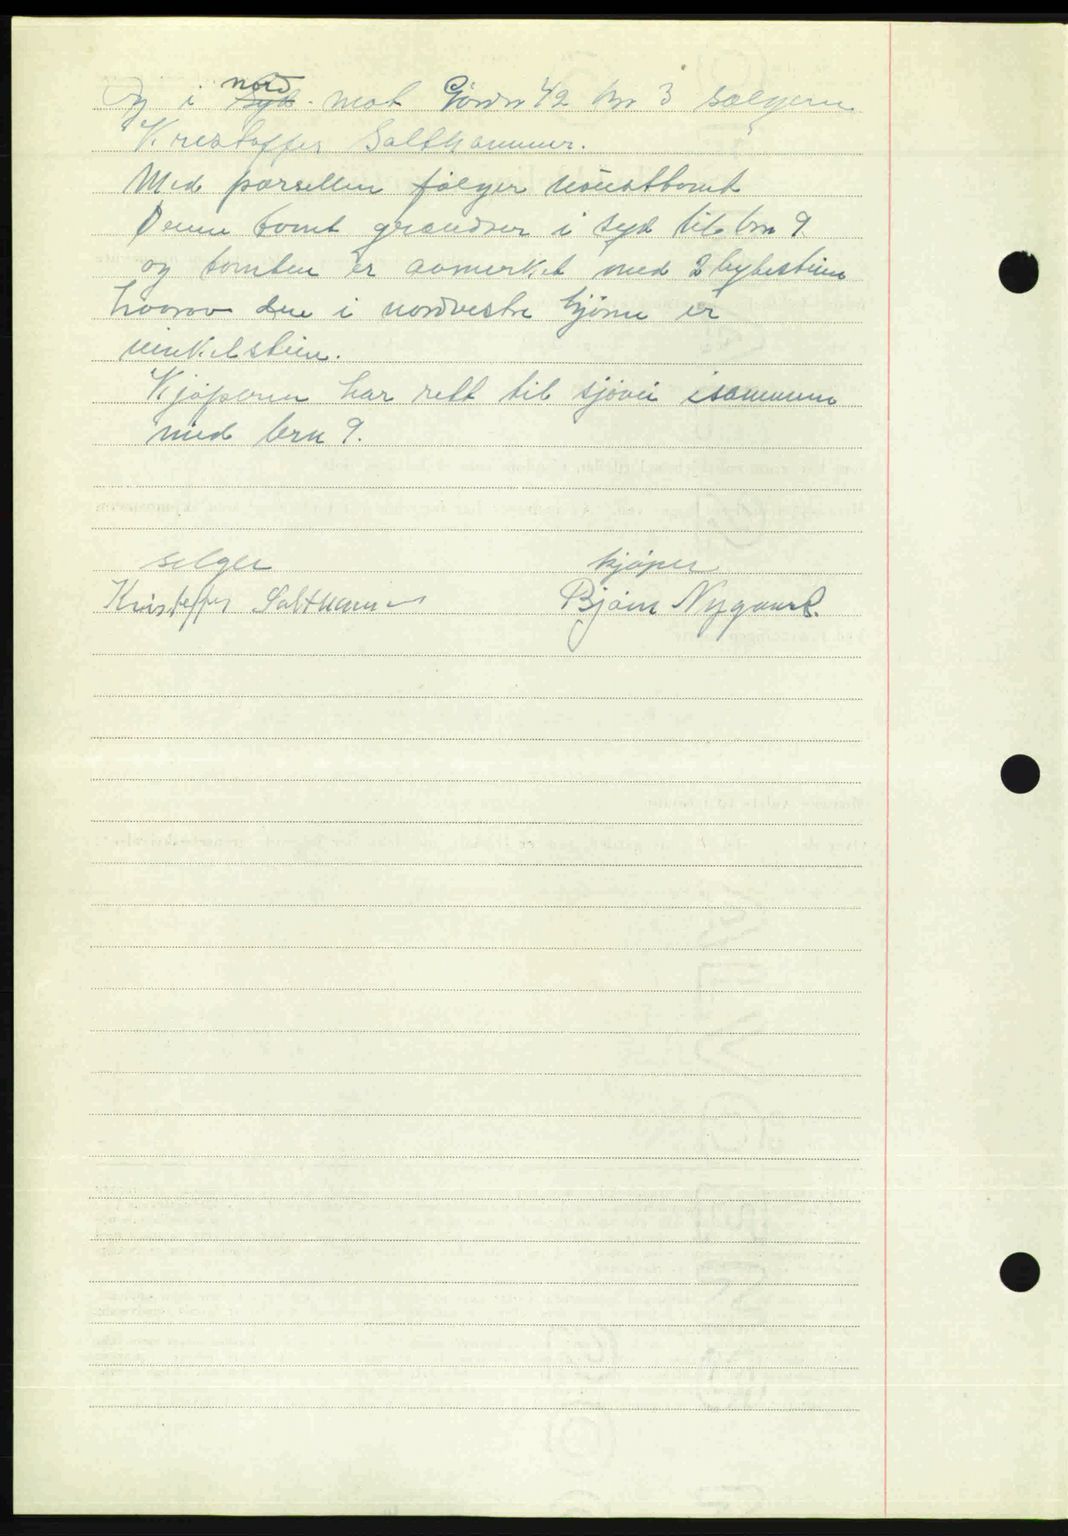 Og i nord mot Gårdsnr 42 bnr 3 sælgeren
Kristoffer Salthammer.
Med parsellen følger nöusttomt
Denne tomt grændser i syd til brn 9
og tomten er avmerket med 2 bytesteine
hvorav den i nordvestre hjørne er
vinkelstein.
Kjøperen har rett til sjøvei isammen
med brn 9.
selger kjøper
Kristoffer Salthammer Bjørn Nygaard.